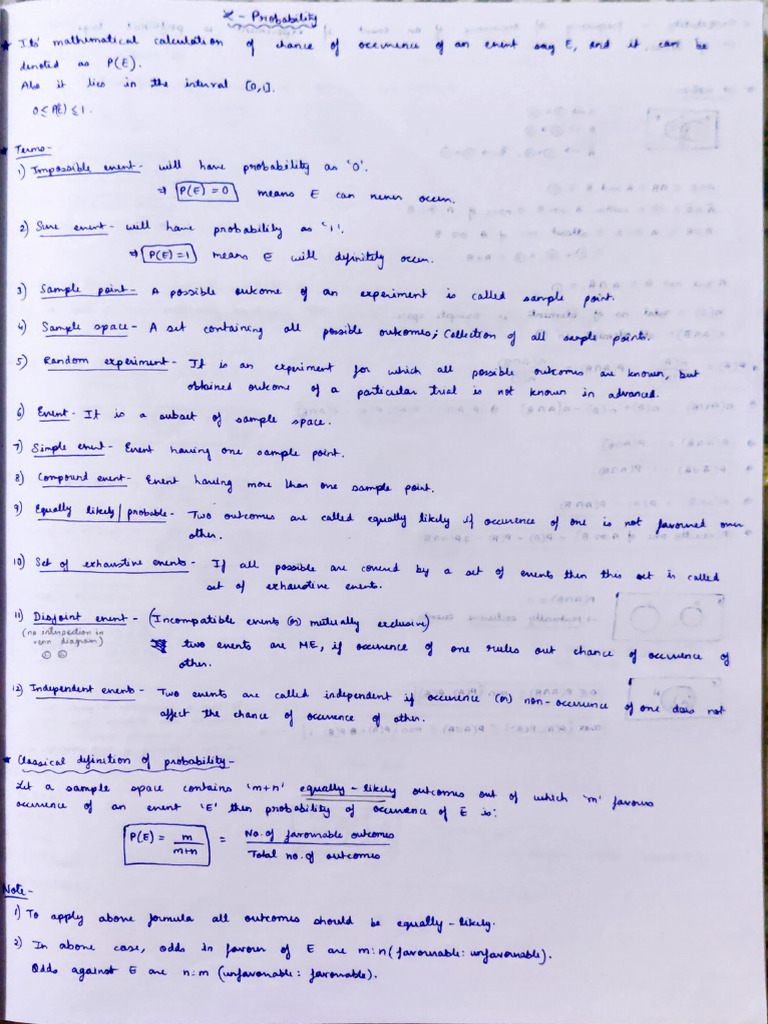 2 - Probability
★ Its' mathematical calculation of chance of occurrence of an event say E, and it can be
denoted as P(E).
Also it lies in the interval [0,1].
0 ≤ P(E) ≤ 1.
★ Terms-
1) Impossible event - will have probability as '0'.
⇒ P(E) = 0 means E can never occur.
2) Sure event - will have probability as '1'.
⇒ P(E) = 1 means E will definitely occur.
3) Sample point - A possible outcome of an experiment is called sample point.
4) Sample space - A set containing all possible outcomes; Collection of all sample points.
5) Random experiment - It is an experiment for which all possible outcomes are known, but
obtained outcome of a particular trial is not known in advanced.
6) Event - It is a subset of sample space.
7) Simple event - Event having one sample point.
8) Compound event - Event having more than one sample point.
9) Equally likely/probable - Two outcomes are called equally likely if occurence of one is not favoured over
other.
10) Set of exhaustive events - If all possible are covered by a set of events then this set is called
set of exhaustive events.
11) Disjoint event - (Incompatible events (or) mutually exclusive)
(no intersection in
venn diagram)
two events are ME, if occurence of one rules out chance of occurence of
other.
12) Independent events - Two events are called independent if occurence (or) non-occurence of one does not
affect the chance of occurence of other.
★ Classical definition of probability -
Let a sample space contains 'm+n' equally-likely outcomes out of which 'm' favours
occurence of an event 'E' then probability of occurance of E is:
P(E) = m/m+n = No. of favourable outcomes/Total no. of outcomes
Note -
1) To apply above formula all outcomes should be equally-likely.
2) In above case, odds in favour of E are m:n (favourable: unfavourable).
Odds against E are n:m (unfavorable: favorable).